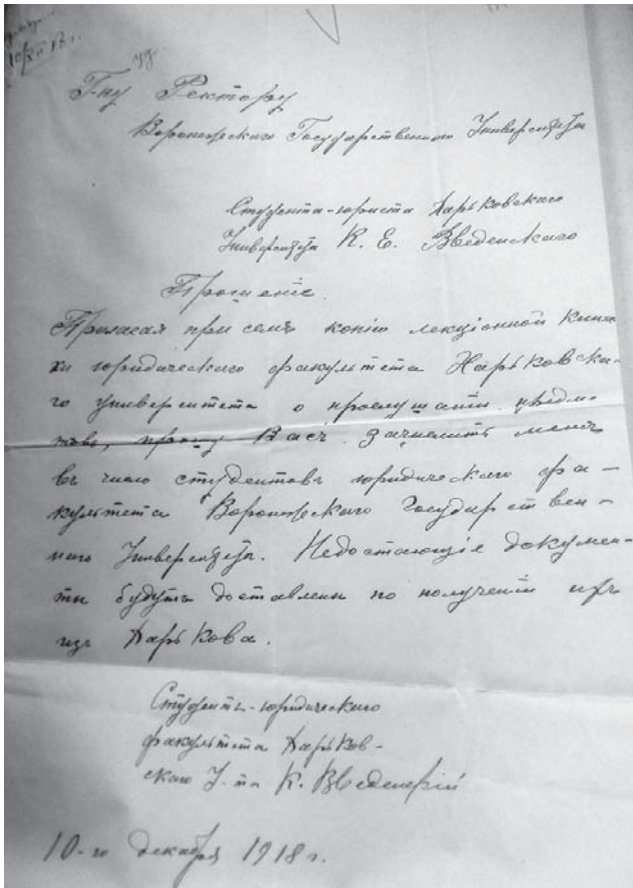 10/XII 18 г.
Г-ну Ректору
Воронежскаго Государственнаго Университета
Студента-юриста Харьковскаго
Университета К. Е. Введенскаго
Прошеніе.
Прилагая при семъ копію лекціонной книж-
ки юридическаго факультета Харьковска-
го университета о прослушаніи предме-
товъ, прошу Васъ зачислить меня
въ число студентовъ юридическаго фа-
культета Воронежскаго Государствен-
наго Университета. Недостающіе докумен-
ты будутъ доставлены по полученіи ихъ
изъ Харькова.
Студентъ-юридическаго
факультета Харьков-
скаго У-та К. Введенскій
10-го декабря 1918 г.